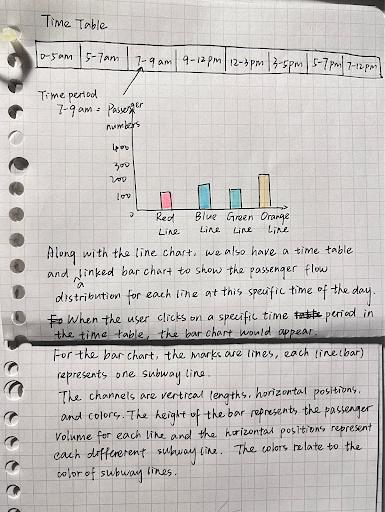 Time Table
0-5am 5-7am 7-9am 9-12pm 12-3pm 3-5pm 5-7pm 7-12pm
Time period
7-9am = Passenger
numbers
400
300
200
100
0
Red Blue Green Orange
Line Line Line Line
Along with the line chart, we also have a time table
and a linked bar chart to show the passenger flow
distribution for each line at this specific time of the day.
When the user clicks on a specific time period in
the time table, the bar chart would appear.
For the bar chart, the marks are lines, each line (bar)
represents one subway line.
The channels are vertical lengths, horizontal positions,
and colors. The height of the bar represents the passenger
volume for each line and the horizontal positions represent
each differerent subway line. The colors relate to the
color of subway lines.